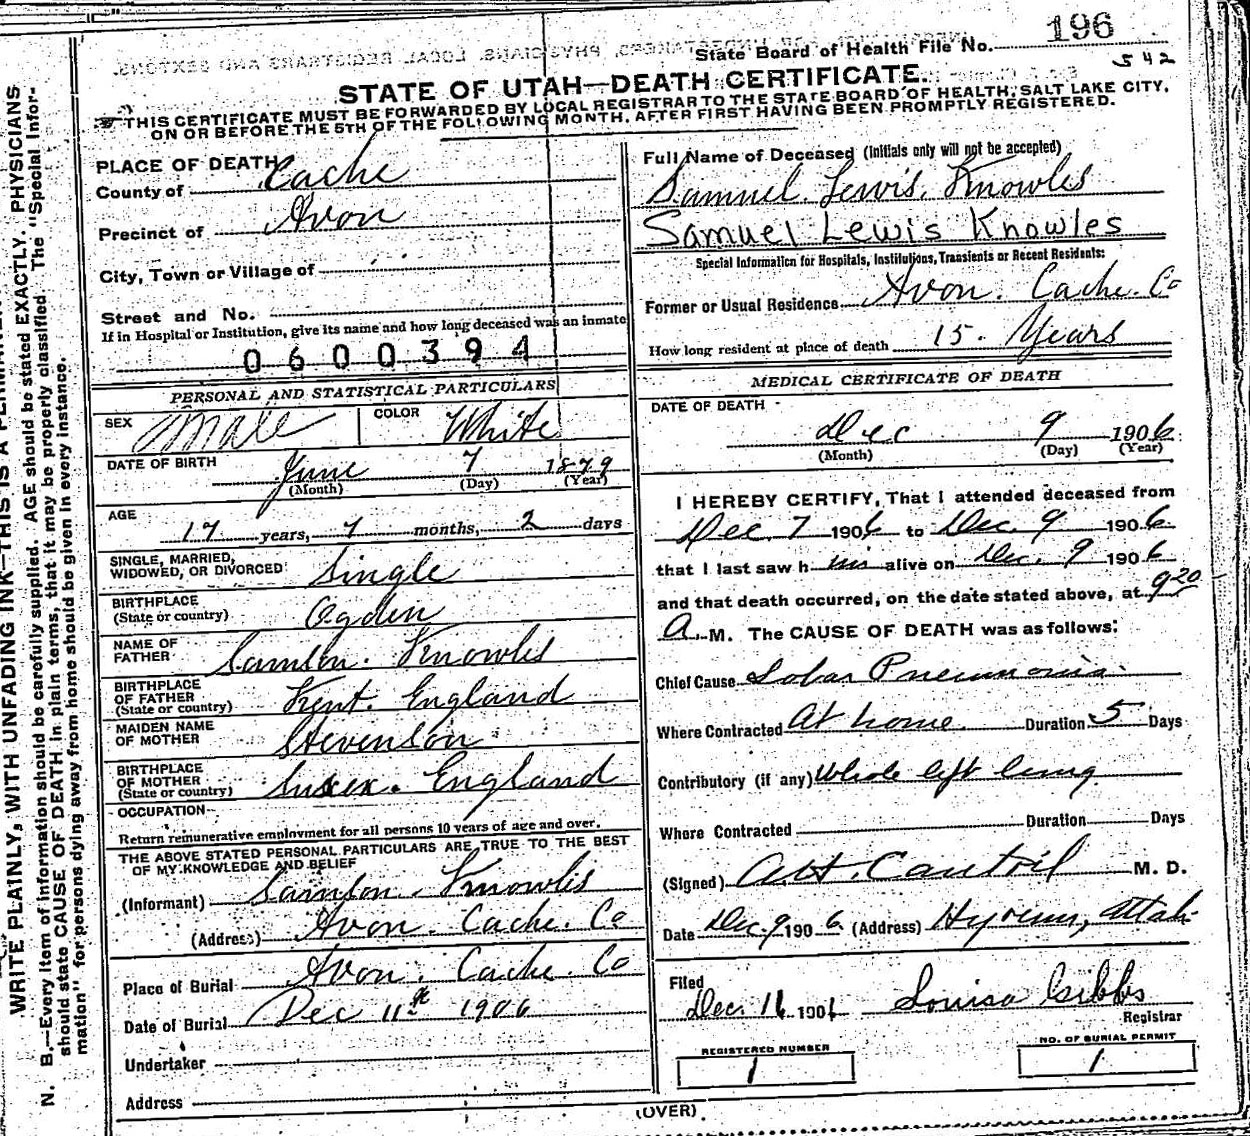 State Board of Health File No. 196
542
STATE OF UTAH—DEATH CERTIFICATE.
THIS CERTIFICATE MUST BE FORWARDED BY LOCAL REGISTRAR TO THE STATE BOARD OF HEALTH, SALT LAKE CITY,
ON OR BEFORE THE 5TH OF THE FOLLOWING MONTH, AFTER FIRST HAVING BEEN PROMPTLY REGISTERED.
PLACE OF DEATH
County of Cache
Precinct of Avon
City, Town or Village of
Street and No.
If in Hospital or Institution, give its name and how long deceased was an inmate
0600394
PERSONAL AND STATISTICAL PARTICULARS
SEX Male COLOR White
DATE OF BIRTH June 7 1879
(Month) (Day) (Year)
AGE
17 years, 7 months, 2 days
SINGLE, MARRIED,
WIDOWED, OR DIVORCED Single
BIRTHPLACE
(State or country) Ogden
NAME OF
FATHER Samson. Knowles
BIRTHPLACE
OF FATHER
(State or country) Kent. England
MAIDEN NAME
OF MOTHER Stevenson
BIRTHPLACE
OF MOTHER
(State or country) Sussex. England
OCCUPATION
Return remunerative employment for all persons 10 years of age and over.
THE ABOVE STATED PERSONAL PARTICULARS ARE TRUE TO THE BEST
OF MY KNOWLEDGE AND BELIEF
(Informant) Samson. Knowles
(Address) Avon. Cache. Co
Place of Burial Avon. Cache. Co
Date of Burial Dec 11th 1906
Undertaker
Address
Full Name of Deceased (Initials only will not be accepted)
Samuel. Lewis. Knowles
Samuel Lewis Knowles
Special Information for Hospitals, Institutions, Transients or Recent Residents:
Former or Usual Residence Avon. Cache. Co
How long resident at place of death 15. Years
MEDICAL CERTIFICATE OF DEATH
DATE OF DEATH
Dec 9 1906
(Month) (Day) (Year)
I HEREBY CERTIFY, That I attended deceased from
Dec 7 1906 to Dec. 9 1906
that I last saw h im alive on Dec. 9 1906
and that death occurred, on the date stated above, at 9 20
A. M. The CAUSE OF DEATH was as follows:
Chief Cause Lobar Pneumonia
Where Contracted At home Duration 5 Days
Contributory (if any) Whole left lung
Where Contracted Duration Days
(Signed) Cantril M. D.
Date Dec. 9 1906 (Address) Hyrum, Utah
Filed
Dec. 16 1906 Louisa Gibbs
Registrar
REGISTERED NUMBER
1
NO. OF BURIAL PERMIT
1
(OVER)
WRITE PLAINLY, WITH UNFADING INK—THIS IS A
N. B.—Every item of information should be carefully supplied. AGE should be stated EXACTLY. PHYSICIANS
should state CAUSE OF DEATH in plain terms, that it may be properly classified. The "Special Infor-
mation" for persons dying away from home should be given in every instance.